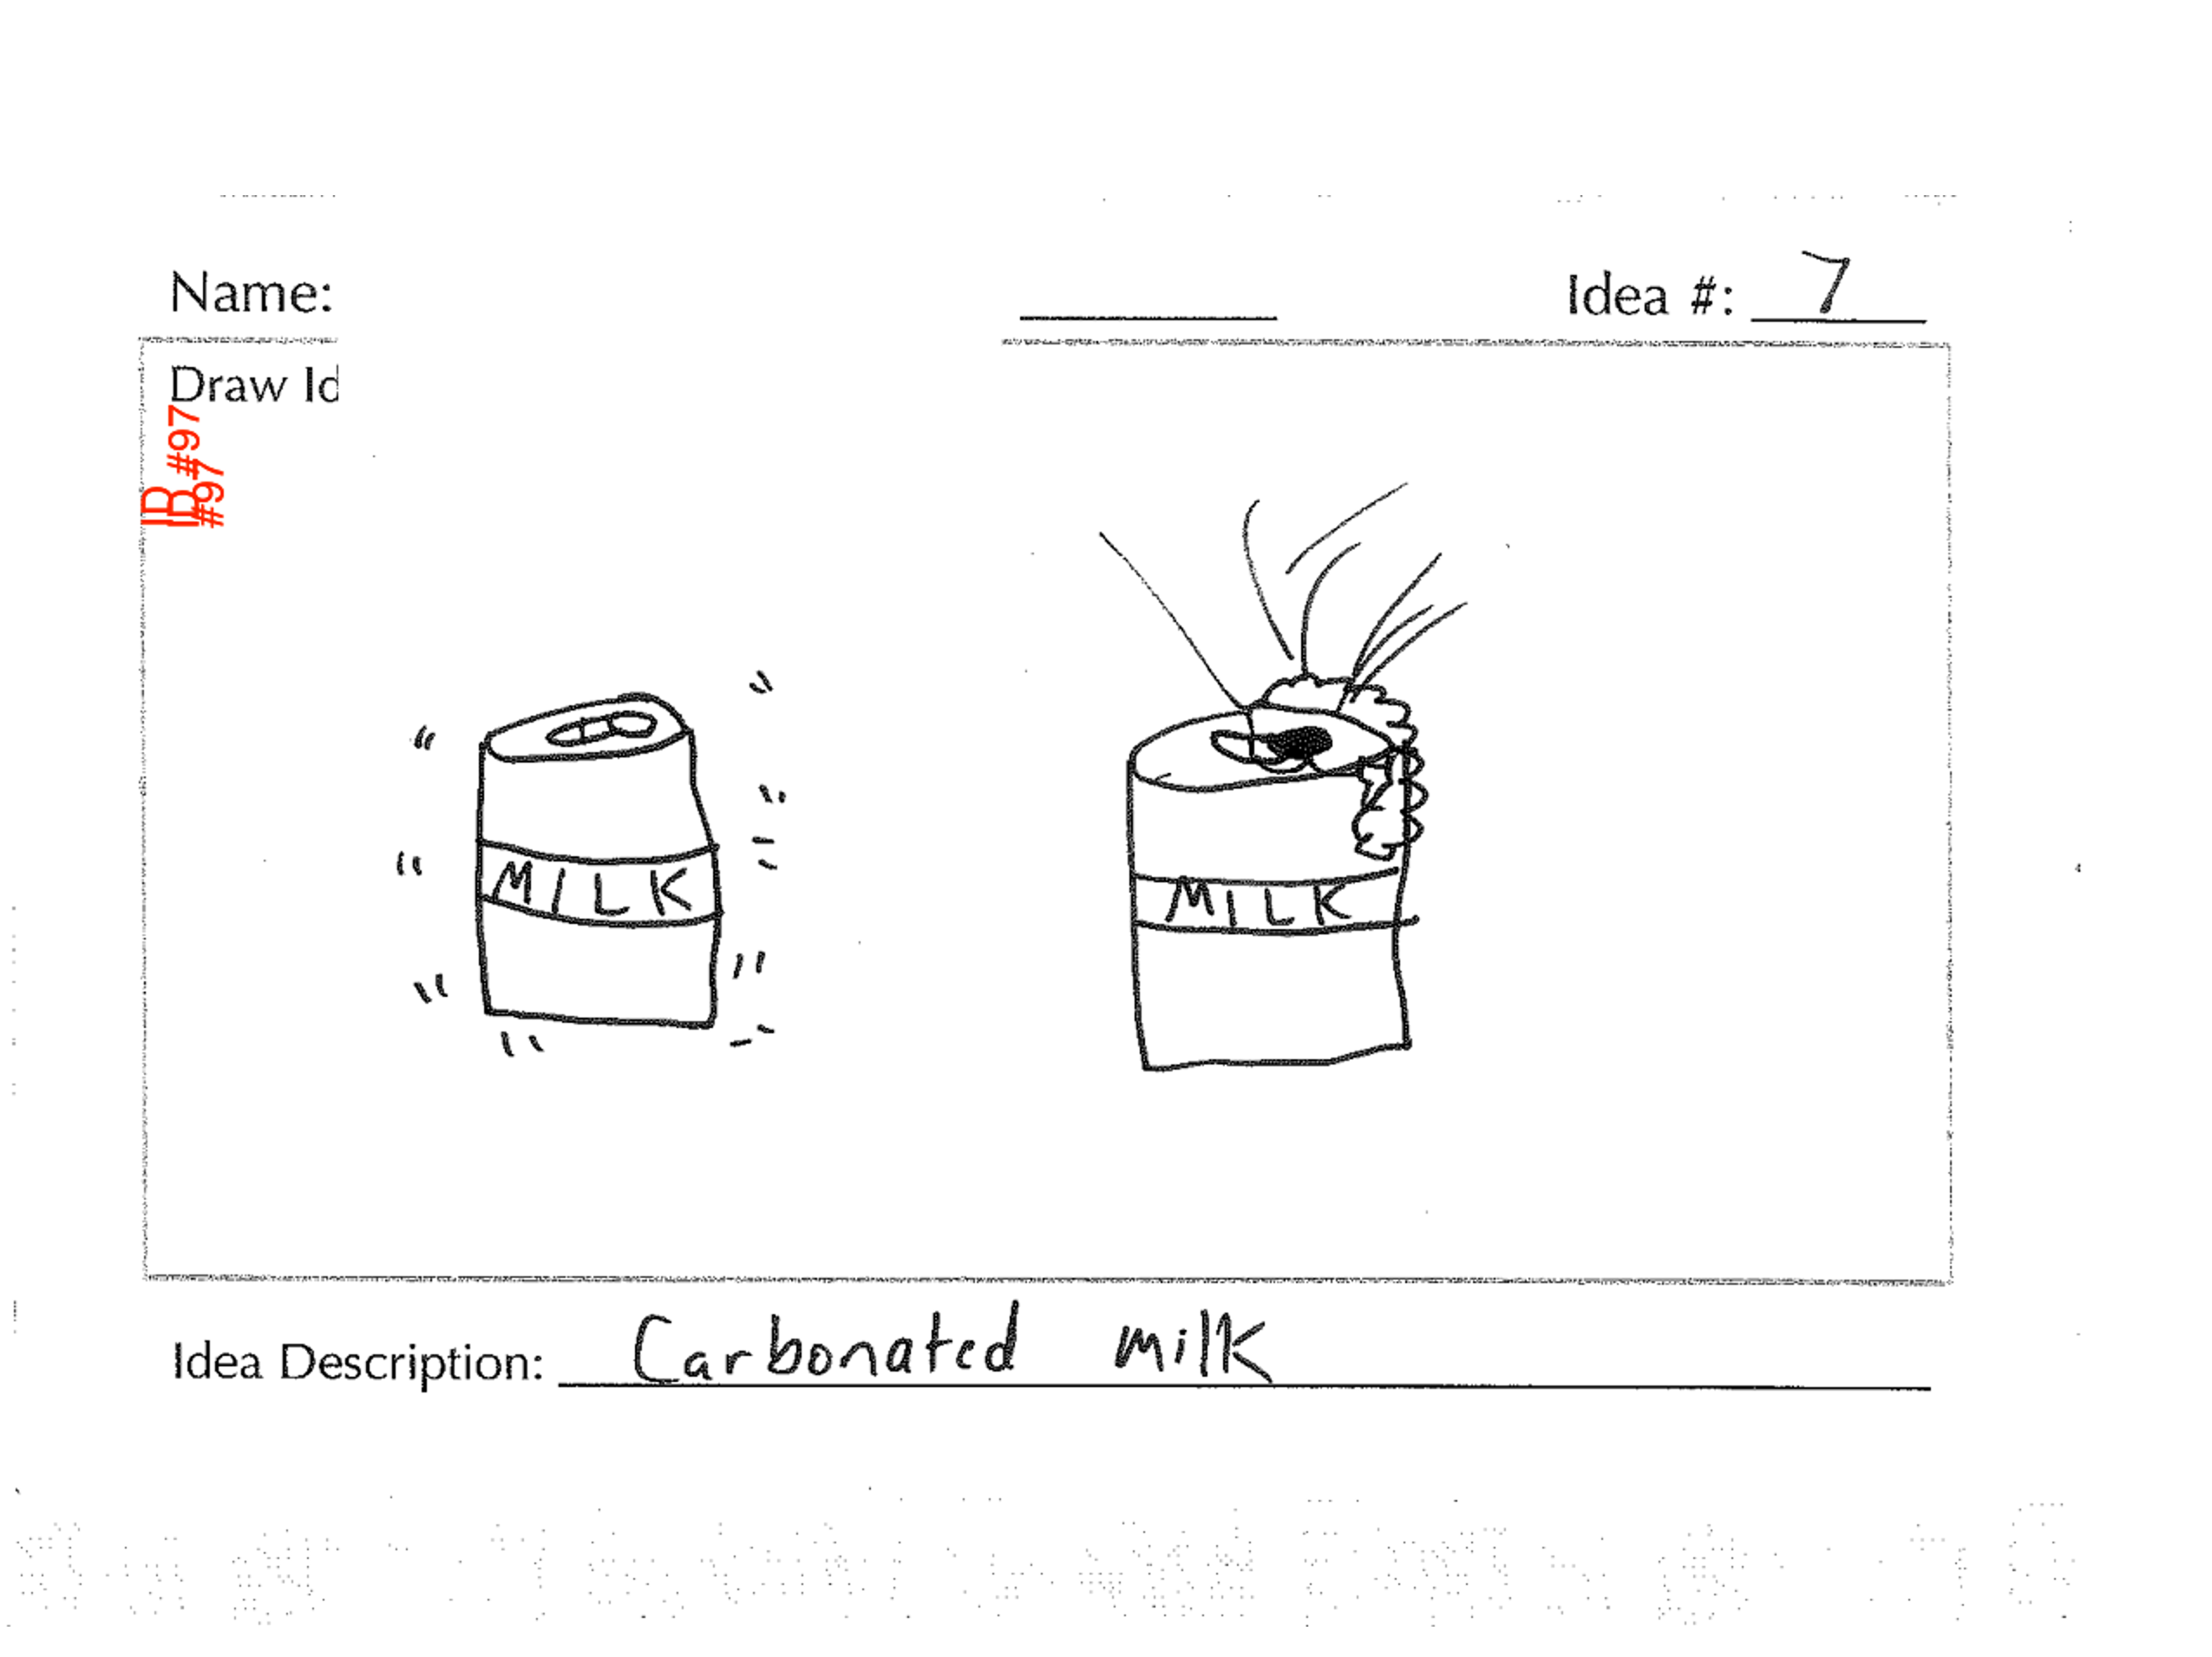 Name: Idea #: 7
Draw Id
ID #97
ID #97
MILK MILK
Idea Description: Carbonated milk